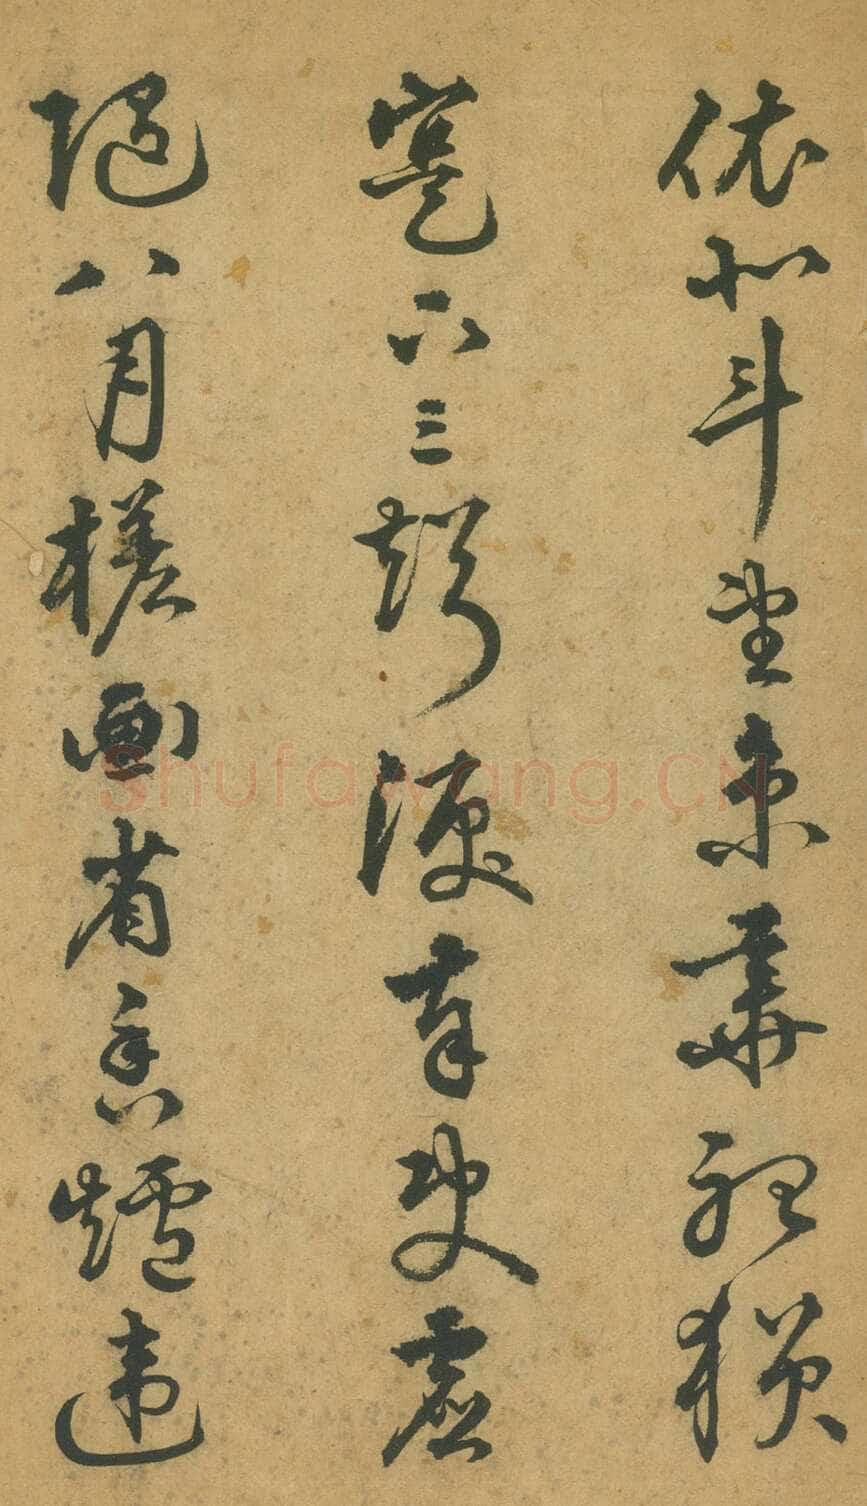 依北斗望京華聽猿
寔下三聲淚奉使虛
隨八月槎畫省香爐違
Shufawang.CN